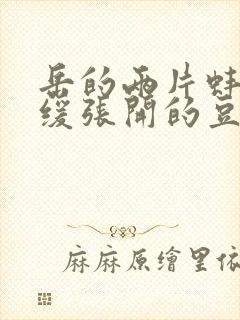 岳的两片蚌
缓张開的豆
麻麻原繪里依